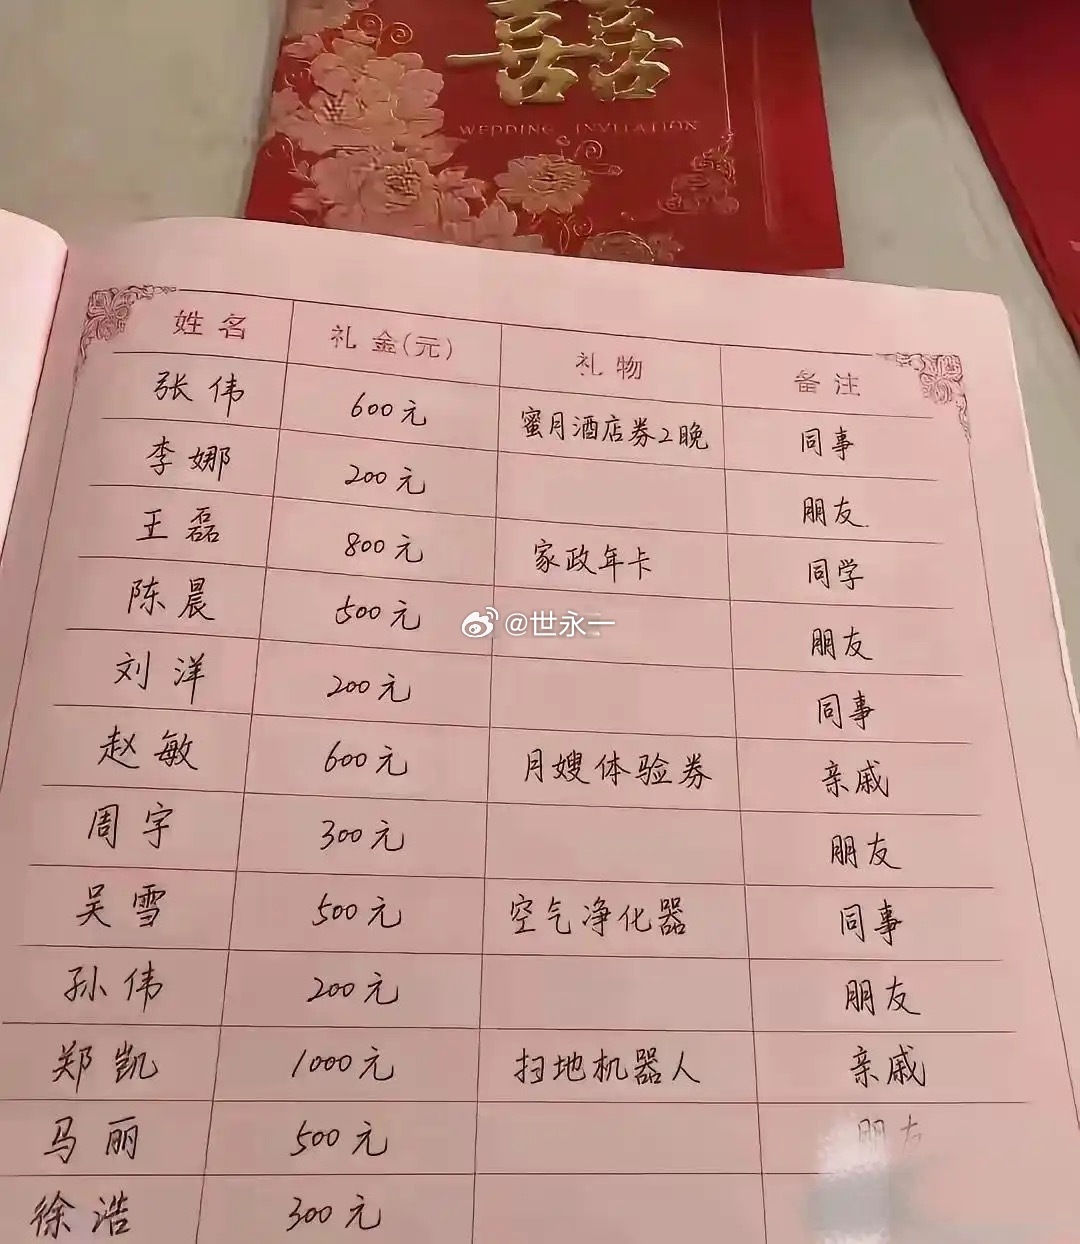 囍
WEDDING INVITATION
姓名 礼金(元) 礼物 备注
张伟 600元 蜜月酒店券2晚 同事
李娜 200元 朋友
王磊 800元 家政年卡 同学
陈晨 500元 朋友
刘洋 200元 同事
赵敏 600元 月嫂体验券 亲戚
周宇 300元 朋友
吴雪 500元 空气净化器 同事
孙伟 200元 朋友
郑凯 1000元 扫地机器人 亲戚
马丽 500元 朋友
徐浩 300元
@世永一